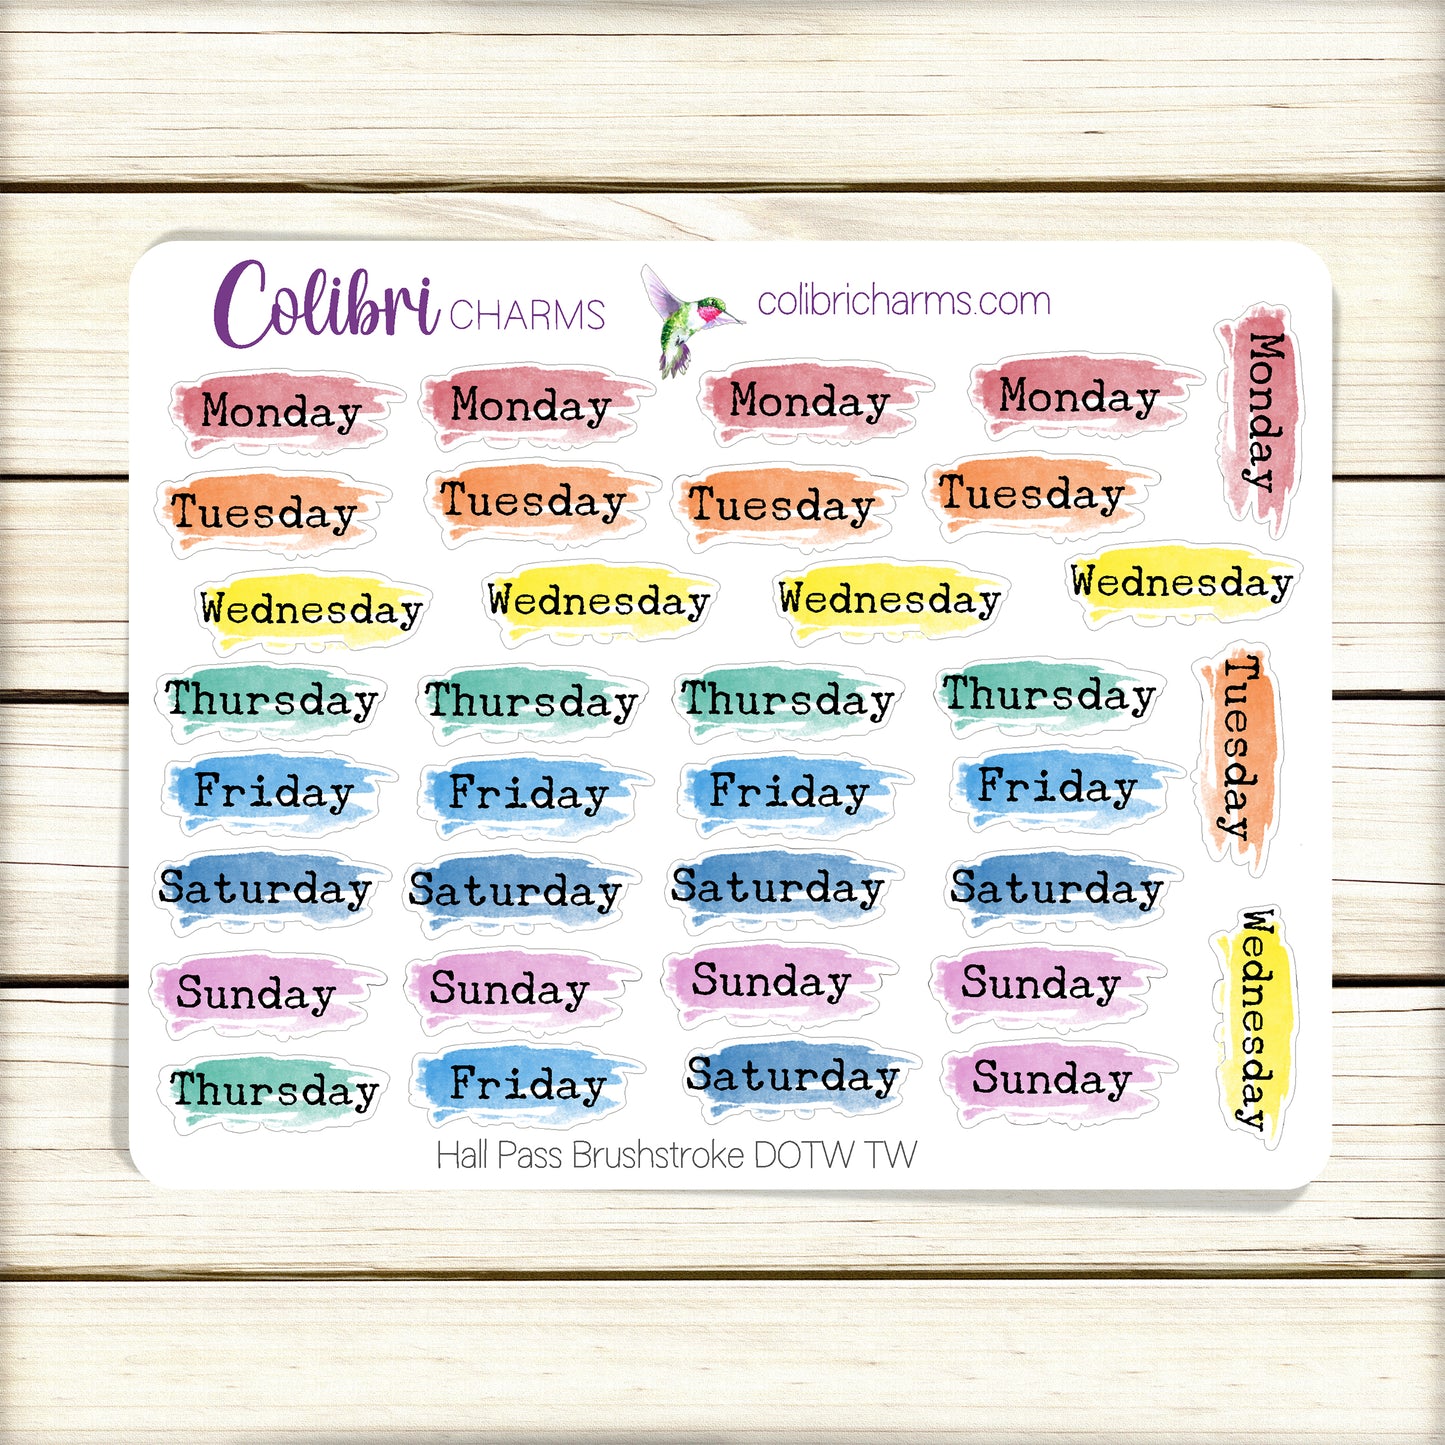 Colibri CHARMS
colibricharms.com
Monday Monday Monday Monday
Monday
Tuesday Tuesday Tuesday Tuesday
Wednesday Wednesday Wednesday Wednesday
Thursday Thursday Thursday Thursday
Tuesday
Friday Friday Friday Friday
Saturday Saturday Saturday Saturday
Wednesday
Sunday Sunday Sunday Sunday
Thursday Friday Saturday Sunday
Hall Pass Brushstroke DOTW TW